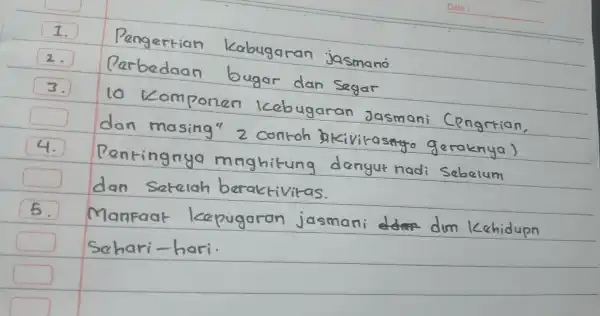 Date:
1. Pengertian kabugaran jasmano
2. Perbedaan bugar dan segar
3. 10 komponen kebugaran jasmani (pngrtian,
dan masing" 2 contoh aktivitasnya geraknya)
4. Pentingnya mnghitung denyut nadi sebelum
dan setelah beraktivitas.
5. Manfaat kepugaran jasmani dlm kehidupn
sehari-hari.